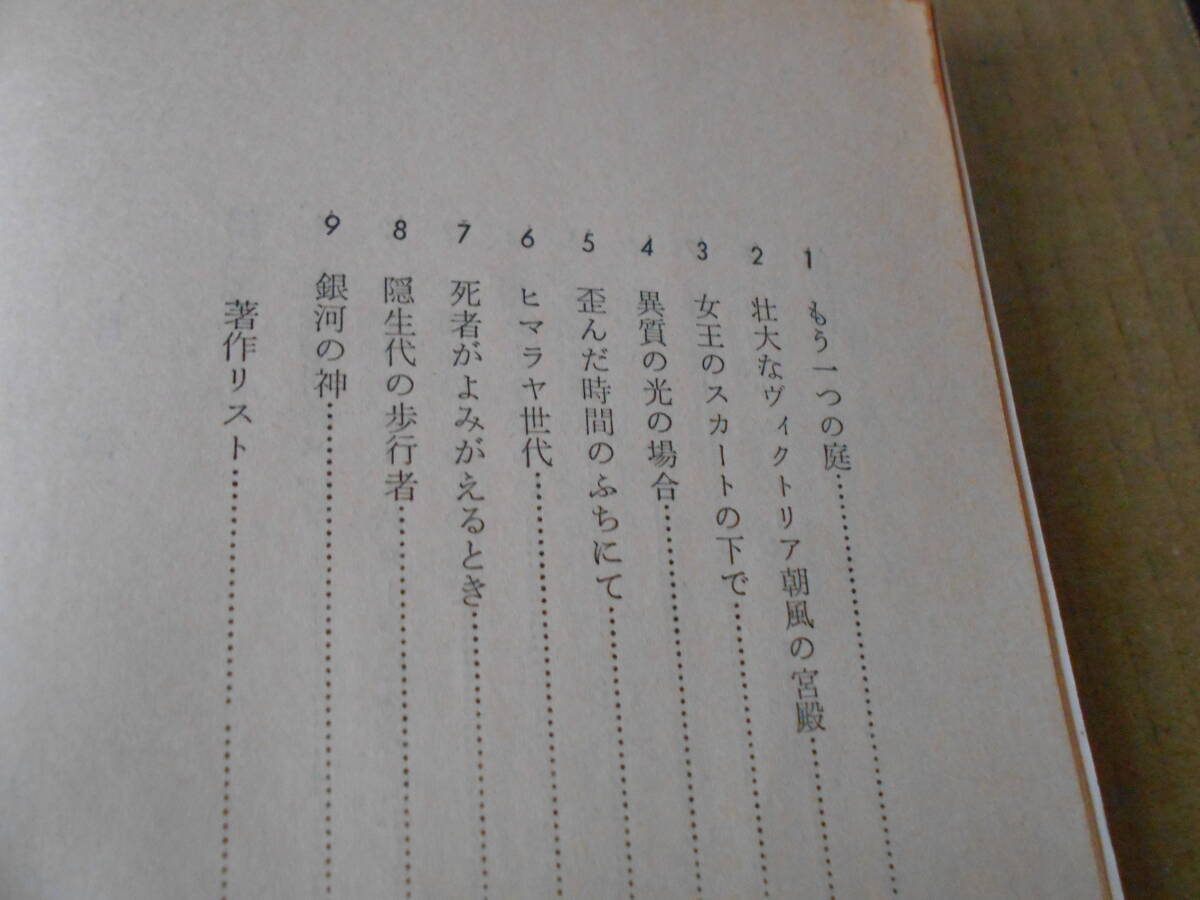 1 もう一つの庭
2 壮大なヴィクトリア朝風の宮殿
3 女王のスカートの下で
4 異質の光の場合
5 歪んだ時間のふちにて
6 ヒマラヤ世代
7 死者がよみがえるとき
8 隠生代の歩行者
9 銀河の神
著作リスト